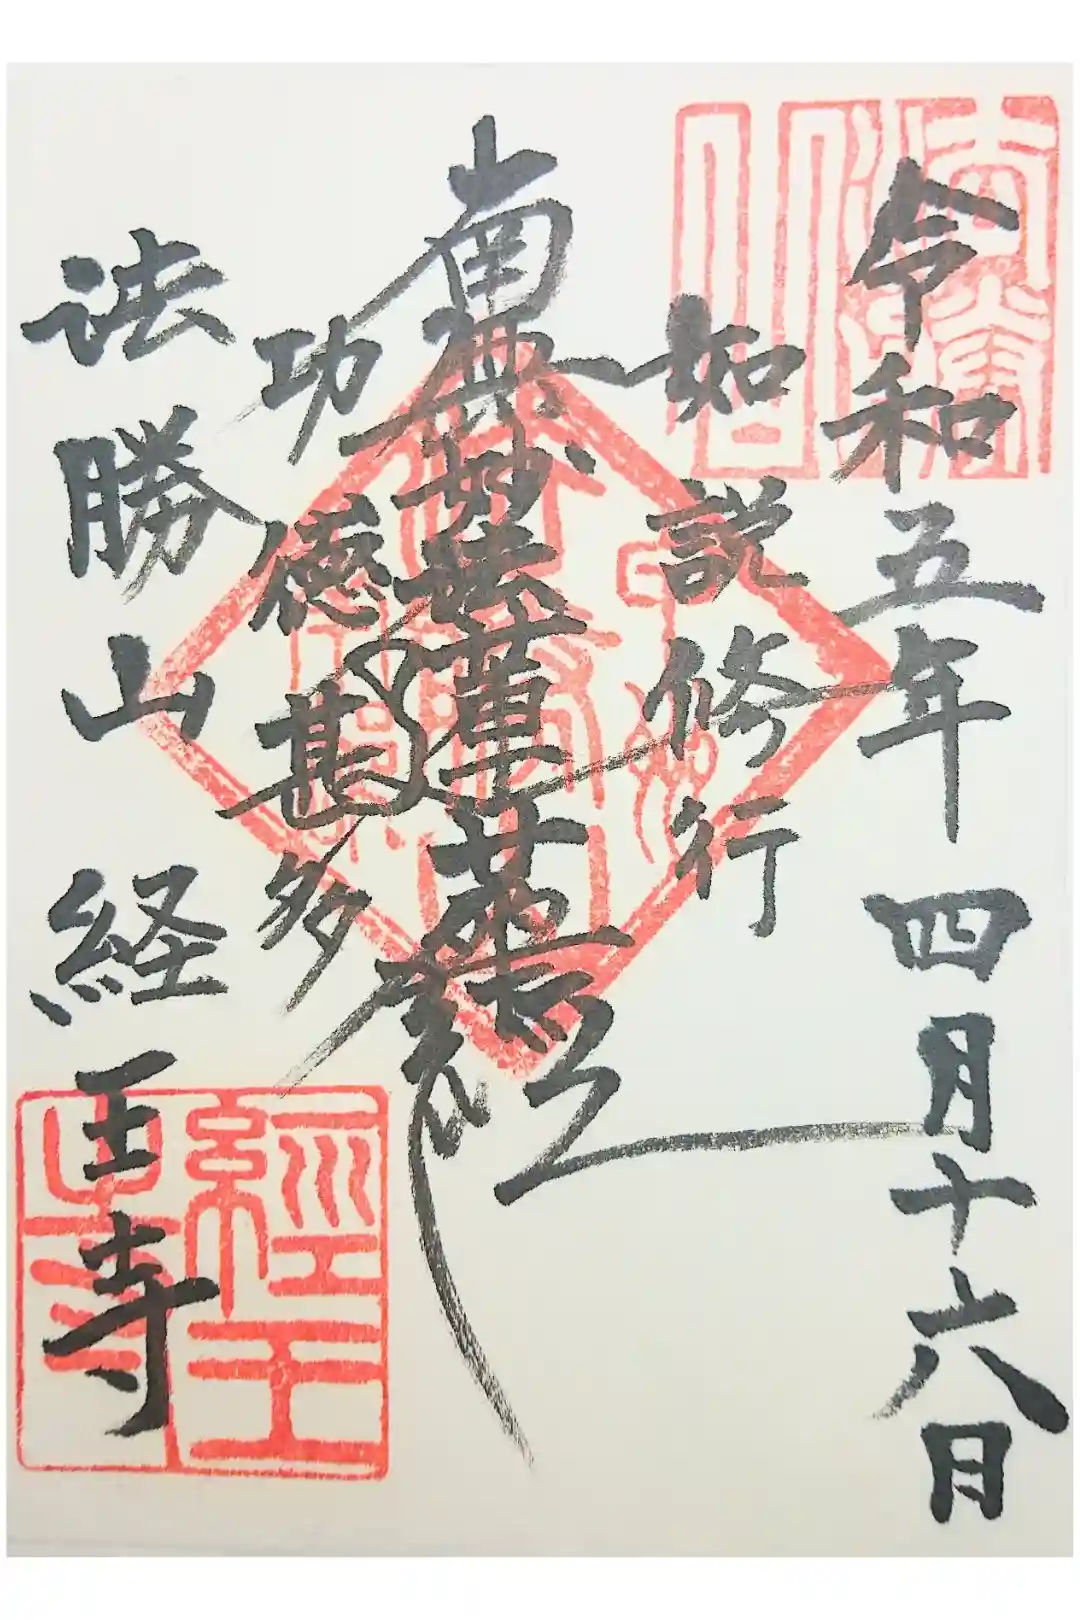 令和五年四月十六日
如説修行
南無妙法蓮華経
功徳甚多
法勝山 経王寺
經王寺